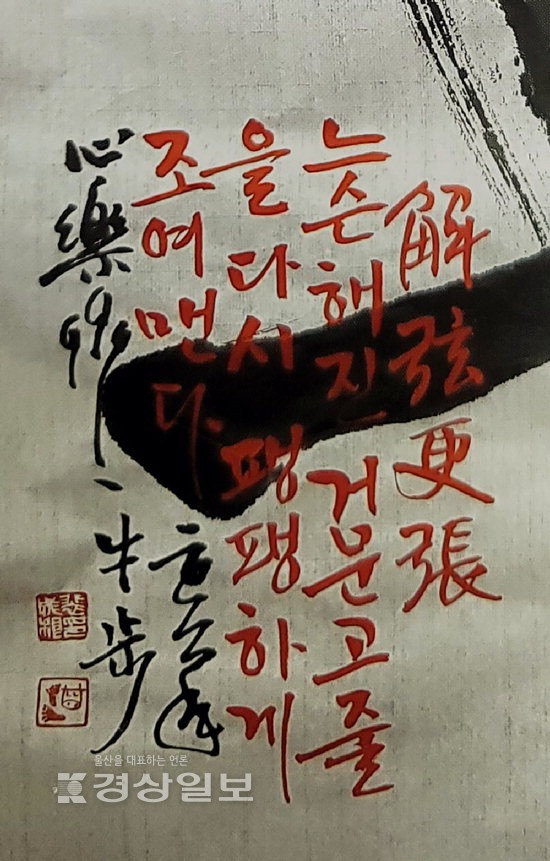 解弦更張
느슨해진 거문고줄
을 다시 팽팽하게
조여맨다.
心樂
牛步
울산을 대표하는 언론
경상일보